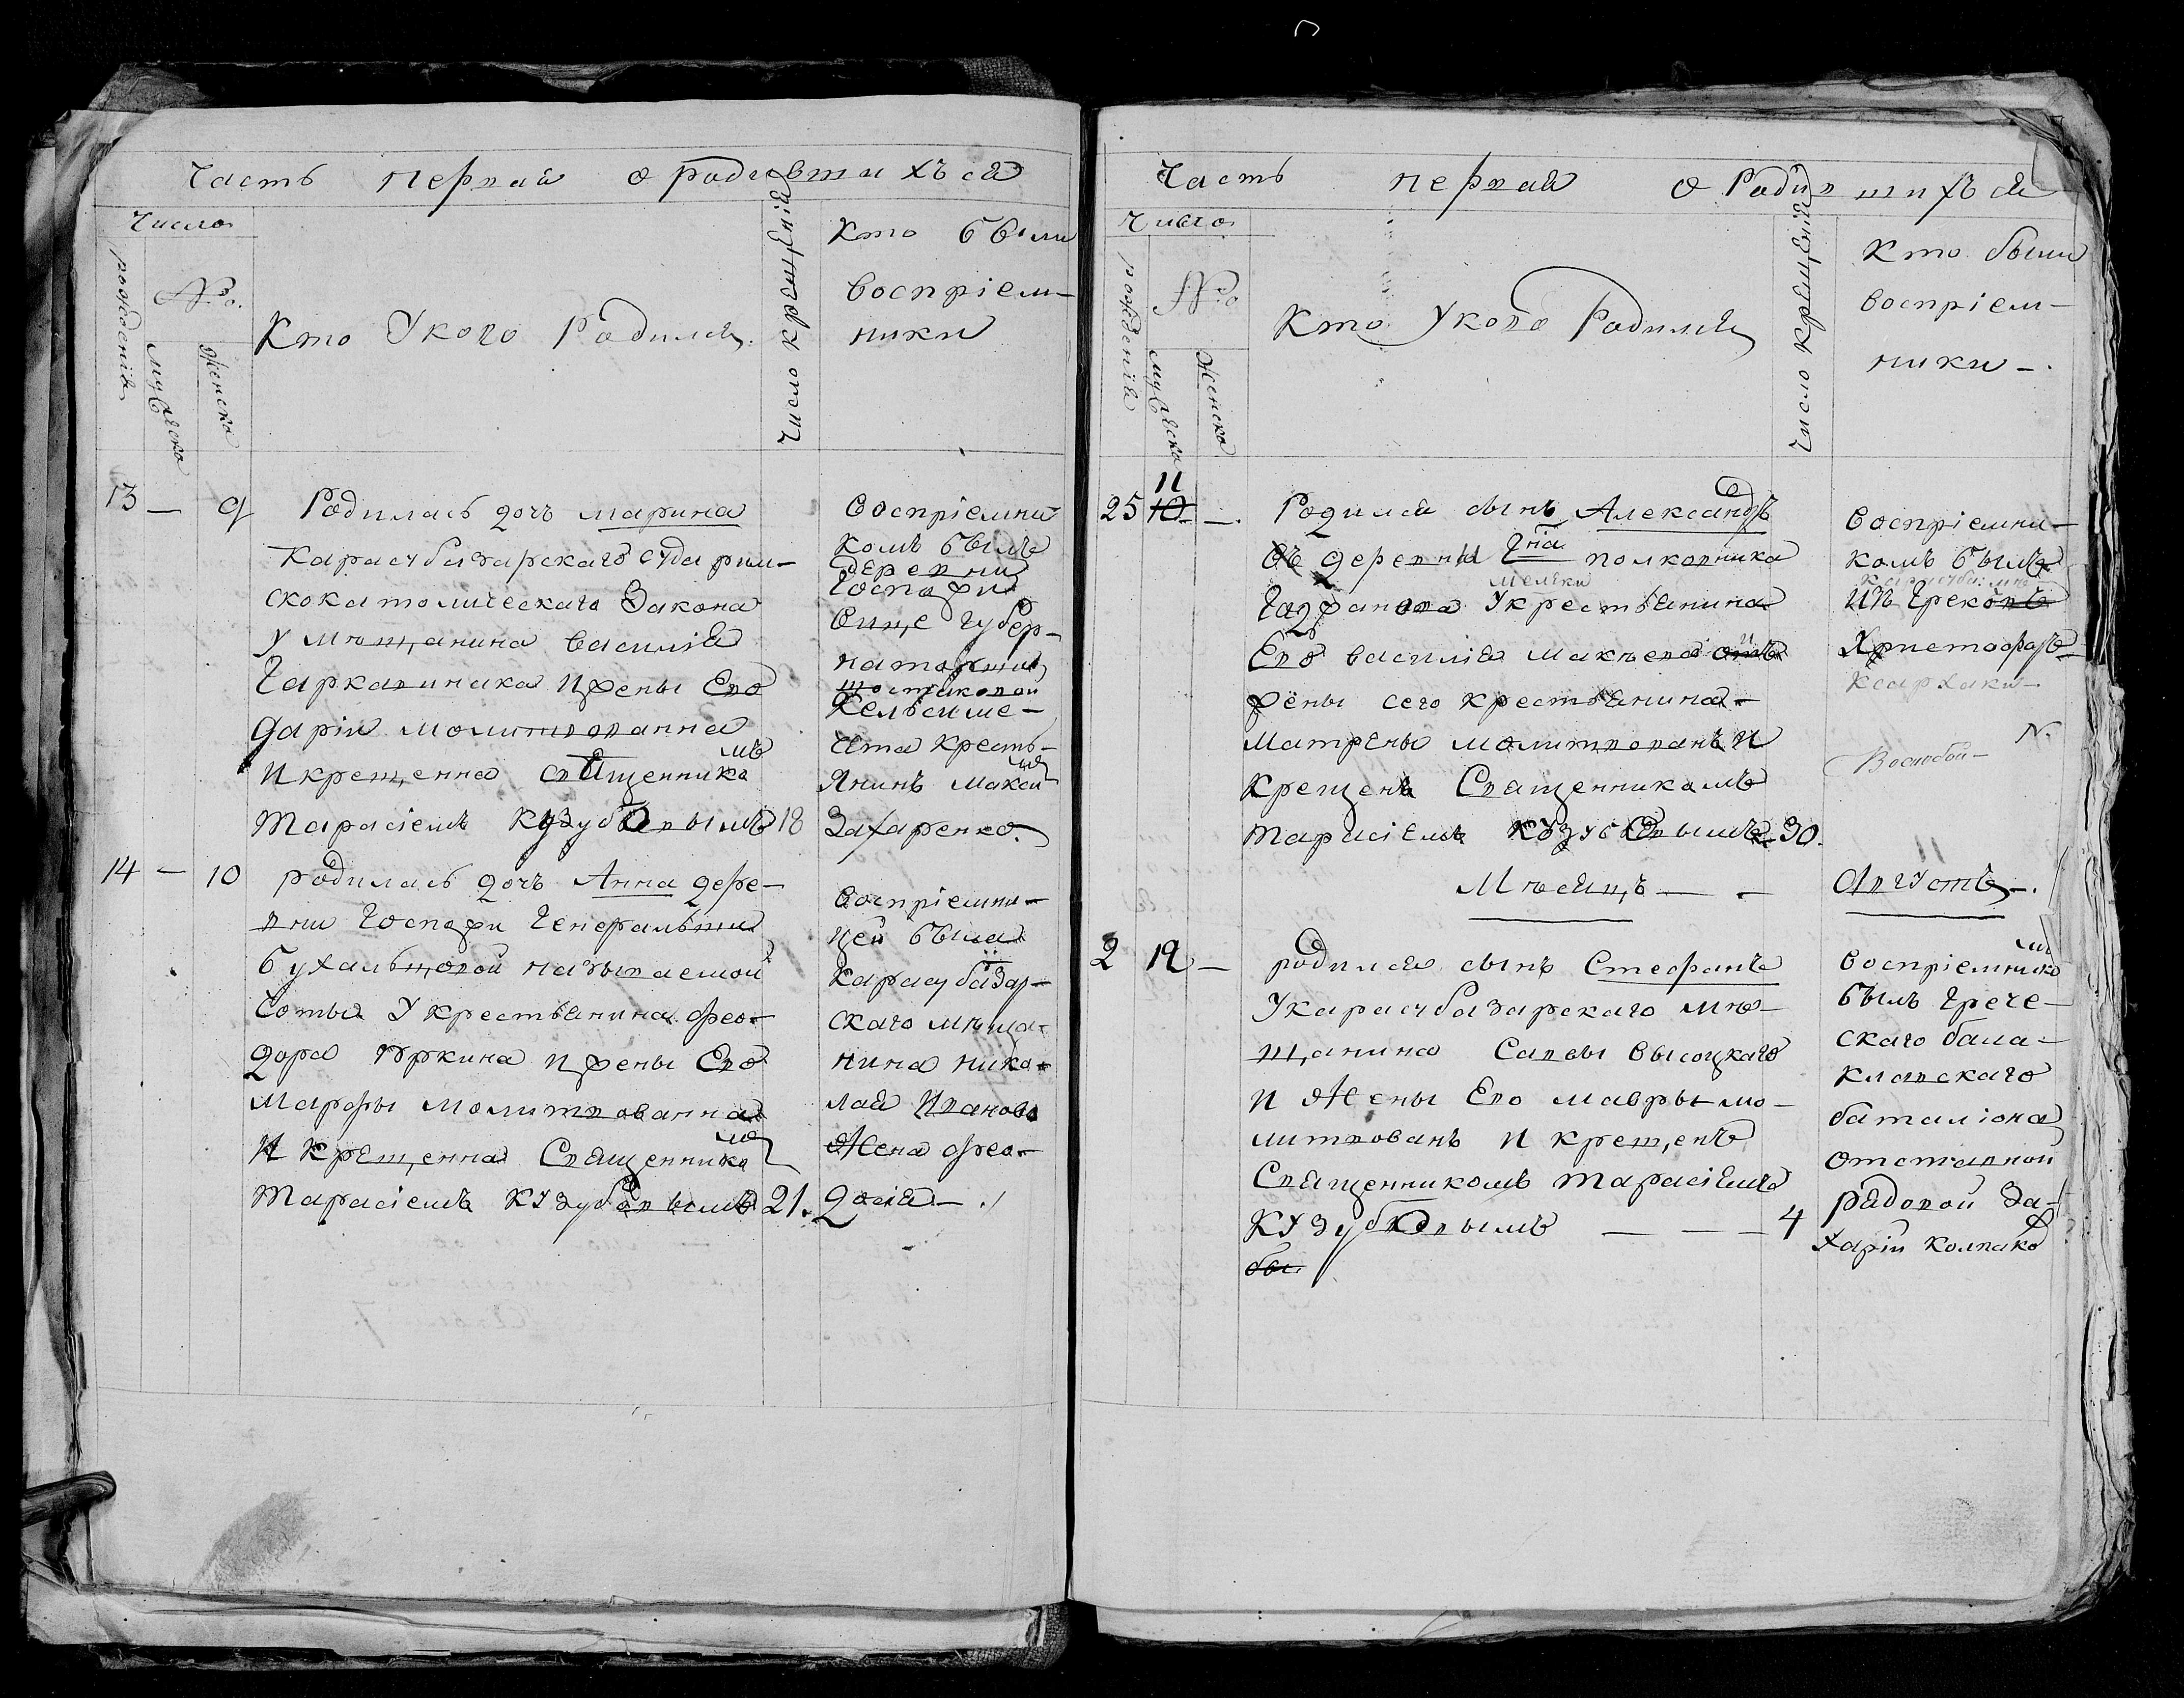 Часть первая о родившихъся
Число
рожденія
№о.
мужеска
женска
Кто Укого Родился.
Число крещенія
Кто были
воспріем-
ники
13 — 9
Родилась дочъ марина
карасубазарскаго суда рим-
скокатолическаго Закона
у мѣщанина василія
И жены Его
дарїи молитвованна
И крещенна священникомъ
Тарасіемъ Кузубовымъ 18
воспріемни
комъ былъ
деревни
Госпожи
Вице Губер-
наторши
крестъ-
янинъ Максимъ
Захаренко.
14 — 10
родилась дочъ Анна дере-
вни Госпожи Генеральши
называемой
Соты У крестьянина фео-
дора Юркина И жены Его
Марфы молитвованна
И крещенна Священникомъ
Тарасіемъ Кузубовымъ 21.
воспріемни-
цей была
карасубазар-
скаго мѣща-
нина нико-
лая Иванова
Жена фео-
досія — .
Часть первая о Родившихъся
Число
рожденія
№о
мужеска
женска
Кто Укого Родился
Число крещенія
Кто были
воспріем-
ники — .
11
25 10 — .
Родился сынъ Александръ
въ деревни Гна полковника
Укрестьянина
Его василія
жены сего крестьянина
Матрены молитвованъ И
Крещенъ Священникомъ
Тарасіемъ Кузубовымъ 30.
воспріемни-
комъ былъ
Изъ Грековъ
Христофоръ
N.
Мѣсяцъ — — Августъ — .
2 12 —
родился сынъ Стефанъ
Укарасубазарскаго мѣ-
щанина Савы высоцкаго
И Жены Его мавры мо-
литвованъ И крещенъ
Священникомъ Тарасіемъ
Кузубовымъ — — — 4
воспріемникомъ
былъ Грече-
скаго бала-
клавскаго
баталіона
отставной
рядовой За-
харій колпако